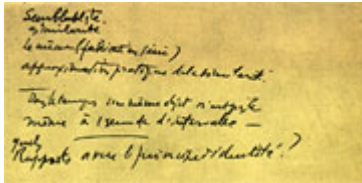 Semblablité.
similarité
le même (fabricat. en série)
approximation pratique de la similarité.
Dans le temps un même objet n'est pas le
même à 1 seconde d'intervalle —
quels
Rapports avec le principe d'identité ?